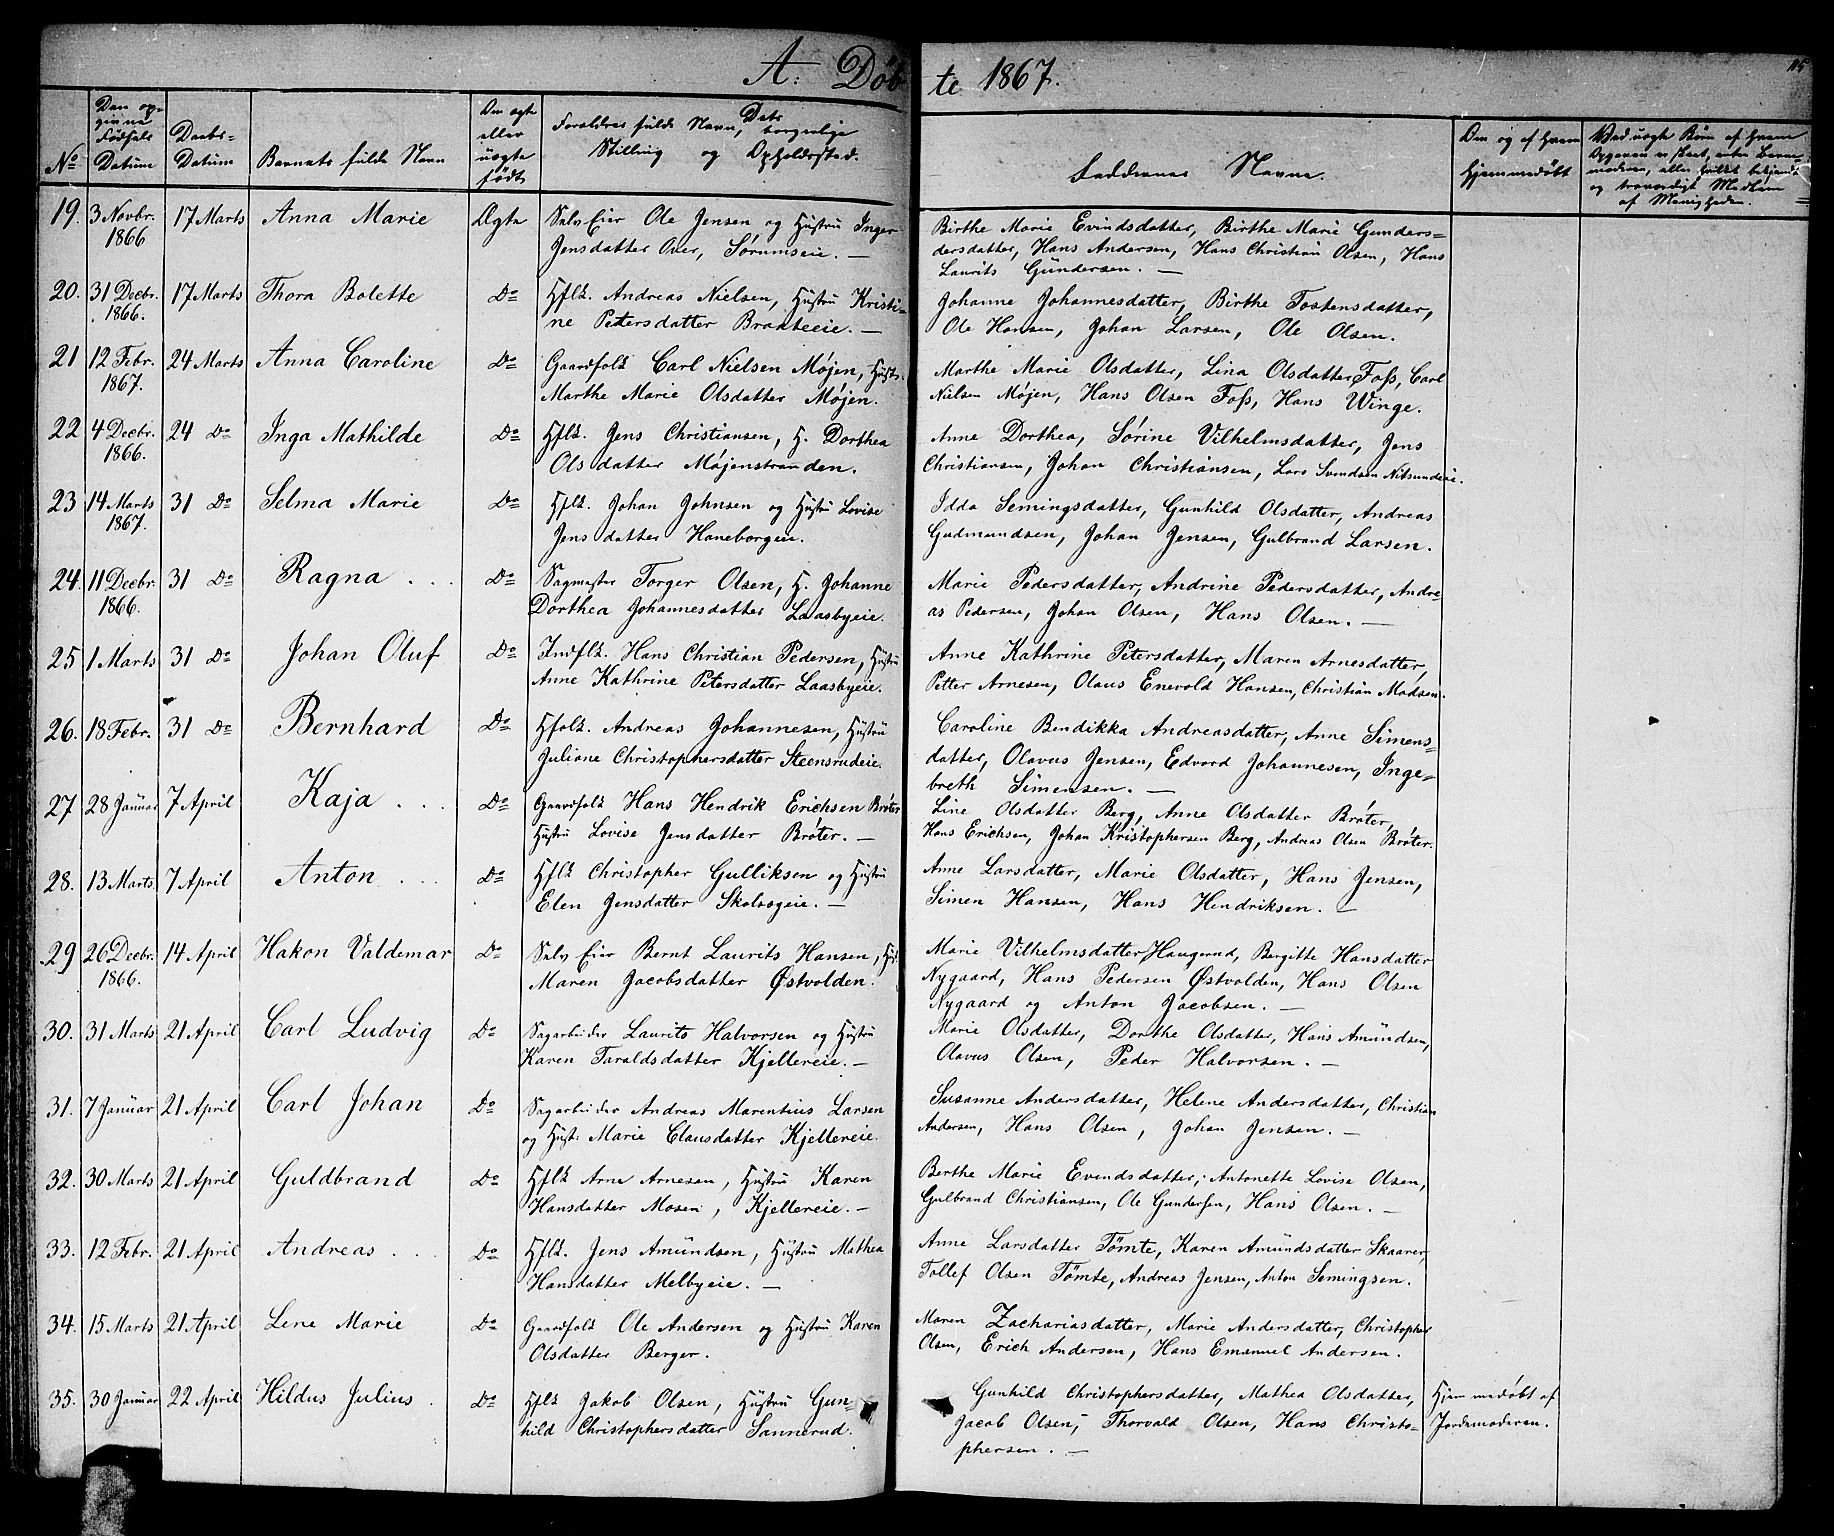 A. Døbte 1867.
115
No
Den opgivne Fødsels Datum
Daabs-Datum
Barnets fulde Navn
Om ægte eller uægte født
Forældres fulde Navn, Dets borgerlige Stilling og Opholdssted.
Faddernes Navne.
Om og af hvem hjemmedøbt
19. 3 Novbr. 1866 17 Marts Anna Marie Ægte Selv Eier Ole Jensen og Hustru Inger
Jensdatter Oser, Sørumseie. —
Birthe Marie Evindsdatter, Birthe Marie Gunders=
dersdatter, Hans Andersen, Hans Christian Olsen, Hans
Laurits Gundersen. —
20. 31 Decbr. 1866. 17 Marts Thora Bolette Do Hflk. Andreas Nielsen, Hustru Kristi-
ne Petersdatter Braateeie. —
Johanne Johannesdatter, Birthe Tostensdatter,
Ole Hansen, Johan Larsen, Ole Olsen.
21 12 Febr. 1867. 24 Marts Anna Caroline Do Gaardfolk Carl Nielsen Møjen, Hustr.
Marthe Marie Olsdatter Møjen.
Marthe Marie Olsdatter, Lina Olsdatter Foss, Carl
Nielsen Møjen, Hans Olsen Foss, Hans Winge.
22 4 Decbr. 1866. 24 Do Inga Mathilde Do Hflk. Jens Christiansen, H. Dorthea
Olsdatter Møjenstranden.
Anne Dorthea, Sørine Vilhelmsdatter, Jens
Christiansen, Johan Christiansen, Lars Svendsen Nitsundeie.
23 14 Marts 1867. 31 Do Selma Marie Do Hflk. Johan Johnsen og Hustru Lovise
Jensdatter Haneborgen.
Idda Semingsdatter, Gunhild Olsdatter, Andreas
Gudmundsen, Johan Jensen, Gulbrand Larsen.
24. 11 Decbr. 1866. 31 Do Ragna . . . Do Sagmester Torger Olsen, H. Johanne
Dorthea Johannesdatter Laasbyeie.
Marie Pedersdatter, Andrine Pedersdatter, Andre-
as Pedersen, Johan Olsen, Hans Olsen. —
25 1 Marts 31 Do Johan Oluf Do Indflk. Hans Christian Pedersen, Hustru
Anne Kathrine Petersdatter Laasbyeie.
Anne Kathrine Petersdatter, Maren Arnesdatter,
Petter Arnesen, Olaus Enevold Hansen, Christian Madsen.
26. 18 Febr. 31 Do Bernhard Do Hfolk. Andreas Johannesen, Hustru
Juliane Christophersdatter Steensrudeie.
Caroline Bendikka Andreasdatter, Anne Simens=
datter, Olavus Jensen, Edvard Johannesen, Inge=
breth Simensen. —
27 28 Januar 7 April Kaja . . . Do Gaardfolk Hans Hendrik Erichsen Brøter
Hustru Lovise Jensdatter Brøter. —
Line Olsdatter Berg, Anne Olsdatter Brøter,
Hans Erichsen, Johan Kristophersen Berg, Andreas Olsen Brøter.
28. 13 Marts 7 April Anton . . . Do Hflk Christopher Gulliksen og Hustru
Elen Jensdatter Skolsøgeie. —
Anne Larsdatter, Marie Olsdatter, Hans Jensen,
Simen Hansen, Hans Hendriksen. —
29 26 Decbr. 1866. 14 April Hakon Valdemar Do Selv Eier Bernt Laurits Hansen, Hust.
Maren Jacobsdatter Østvolden.
Marie Vilhelmsdatter Haugerud, Bergitte Hansdatter
Nygaard, Hans Pedersen Østvolden, Hans Olsen
Nygaard og Anton Jacobsen. —
30. 31 Marts 21 April Carl Ludvig Do Sagarbeider Laurits Halvorsen og Hustru
Karen Taraldsdatter Kjellereie. —
Marie Olsdatter, Dorthe Olsdatter, Hans Amundsen,
Olavus Olsen, Peder Halvorsen. —
31. 7 Januar 21 April Carl Johan Do Sagarbeider Andreas Marentius Larsen
og Hust: Marie Clausdatter Kjellereie.
Susanne Andersdatter, Helene Andersdatter, Christian
Andersen, Hans Olsen, Johan Jensen. —
32. 30 Marts 21 April Guldbrand Do Hflk Arne Arnesen, Hustru Karen
Hansdatter Mosen, Kjellereie. —
Berthe Marie Evendsdatter, Antonette Lovise Olsen,
Gulbrand Christiansen, Ole Gundersen, Hans Olsen. —
33. 12 Febr. 21 April Andreas . . Do Hflk. Jens Amundsen, Hustru Mathea
Hansdatter Melbyeie. —
Anne Larsdatter Tømte, Karen Amundsdatter Skaarer,
Tollef Olsen Tømte, Andreas Jensen, Anton Semingsen.
34. 15 Marts 21 April Lene Marie Do Gaardfolk Ole Andersen og Hustru Karen
Olsdatter Berger.
Maren Zachariasdatter, Marie Andersdatter, Christopher
Olsen, Erich Andersen, Hans Emanuel Andersen.
35. 30 Januar 22 April Hildus Julius . Do Hflk Jakob Olsen, Hustru Gun=
hild Christophersdatter Sannerud.
Gunhild Christophersdatter, Mathea Olsdatter,
Jacob Olsen, Thorvald Olsen, Hans Christo-
phersen. —
Hjemmedøbt af
Jordemoderen.